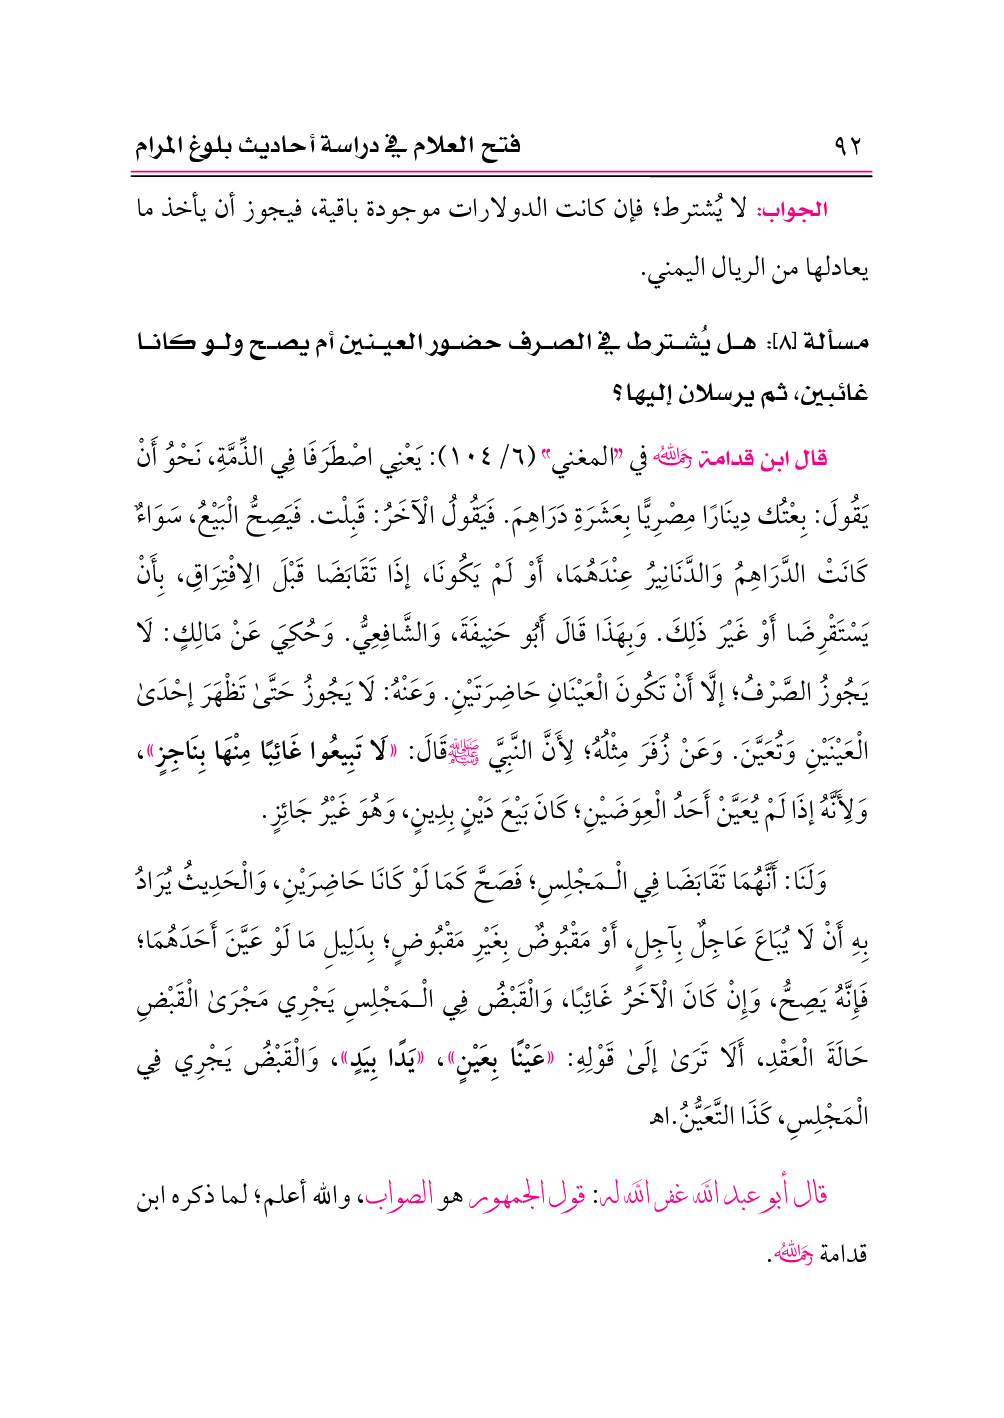 ٩٢ فتح العلام في دراسة أحاديث بلوغ المرام
الجواب: لا يُشترط؛ فإن كانت الدولارات موجودة باقية، فيجوز أن يأخذ ما
يعادلها من الريال اليمني.
مسألة [٨]: هـل يُشـترط في الصـرف حضـور العيـنين أم يصـح ولـو كانـا
غائبين، ثم يرسلان إليها؟
قال ابن قدامة رحمه الله في "المغني" (٦/ ١٠٤): يَعْنِي اصْطَرَفَا فِي الذِّمَّةِ، نَحْوُ أَنْ
يَقُولَ: بِعْتُك دِينَارًا مِصْرِيًّا بِعَشَرَةِ دَرَاهِمَ. فَيَقُولُ الْآخَرُ: قَبِلْت. فَيَصِحُّ الْبَيْعُ، سَوَاءٌ
كَانَتْ الدَّرَاهِمُ وَالدَّنَانِيرُ عِنْدَهُمَا، أَوْ لَمْ يَكُونَا، إذَا تَقَابَضَا قَبْلَ الِافْتِرَاقِ، بِأَنْ
يَسْتَقْرِضَا أَوْ غَيْرَ ذَلِكَ. وَبِهَذَا قَالَ أَبُو حَنِيفَةَ، وَالشَّافِعِيُّ. وَحُكِيَ عَنْ مَالِكٍ: لَا
يَجُوزُ الصَّرْفُ؛ إلَّا أَنْ تَكُونَ الْعَيْنَانِ حَاضِرَتَيْنِ. وَعَنْهُ: لَا يَجُوزُ حَتَّىٰ تَظْهَرَ إحْدَىٰ
الْعَيْنَيْنِ وَتُعَيَّنَ. وَعَنْ زُفَرَ مِثْلُهُ؛ لِأَنَّ النَّبِيَّ ﷺ قَالَ: «لَا تَبِيعُوا غَائِبًا مِنْهَا بِنَاجِزٍ»،
وَلِأَنَّهُ إذَا لَمْ يُعَيَّنْ أَحَدُ الْعِوَضَيْنِ؛ كَانَ بَيْعَ دَيْنٍ بِدِينٍ، وَهُوَ غَيْرُ جَائِزٍ.
وَلَنَا: أَنَّهُمَا تَقَابَضَا فِي الْـمَجْلِسِ؛ فَصَحَّ كَمَا لَوْ كَانَا حَاضِرَيْنِ، وَالْحَدِيثُ يُرَادُ
بِهِ أَنْ لَا يُبَاعَ عَاجِلٌ بِآجِلٍ، أَوْ مَقْبُوضٌ بِغَيْرِ مَقْبُوضٍ؛ بِدَلِيلِ مَا لَوْ عَيَّنَ أَحَدَهُمَا؛
فَإِنَّهُ يَصِحُّ، وَإِنْ كَانَ الْآخَرُ غَائِبًا، وَالْقَبْضُ فِي الْـمَجْلِسِ يَجْرِي مَجْرَىٰ الْقَبْضِ
حَالَةَ الْعَقْدِ، أَلَا تَرَىٰ إلَىٰ قَوْلِهِ: «عَيْنًا بِعَيْنٍ»، «يَدًا بِيَدٍ»، وَالْقَبْضُ يَجْرِي فِي
الْمَجْلِسِ، كَذَا التَّعَيُّنُ.اهـ
قال أبو عبد الله غفر الله له: قول الجمهور هو الصواب، والله أعلم؛ لما ذكره ابن
قدامة رحمه الله.